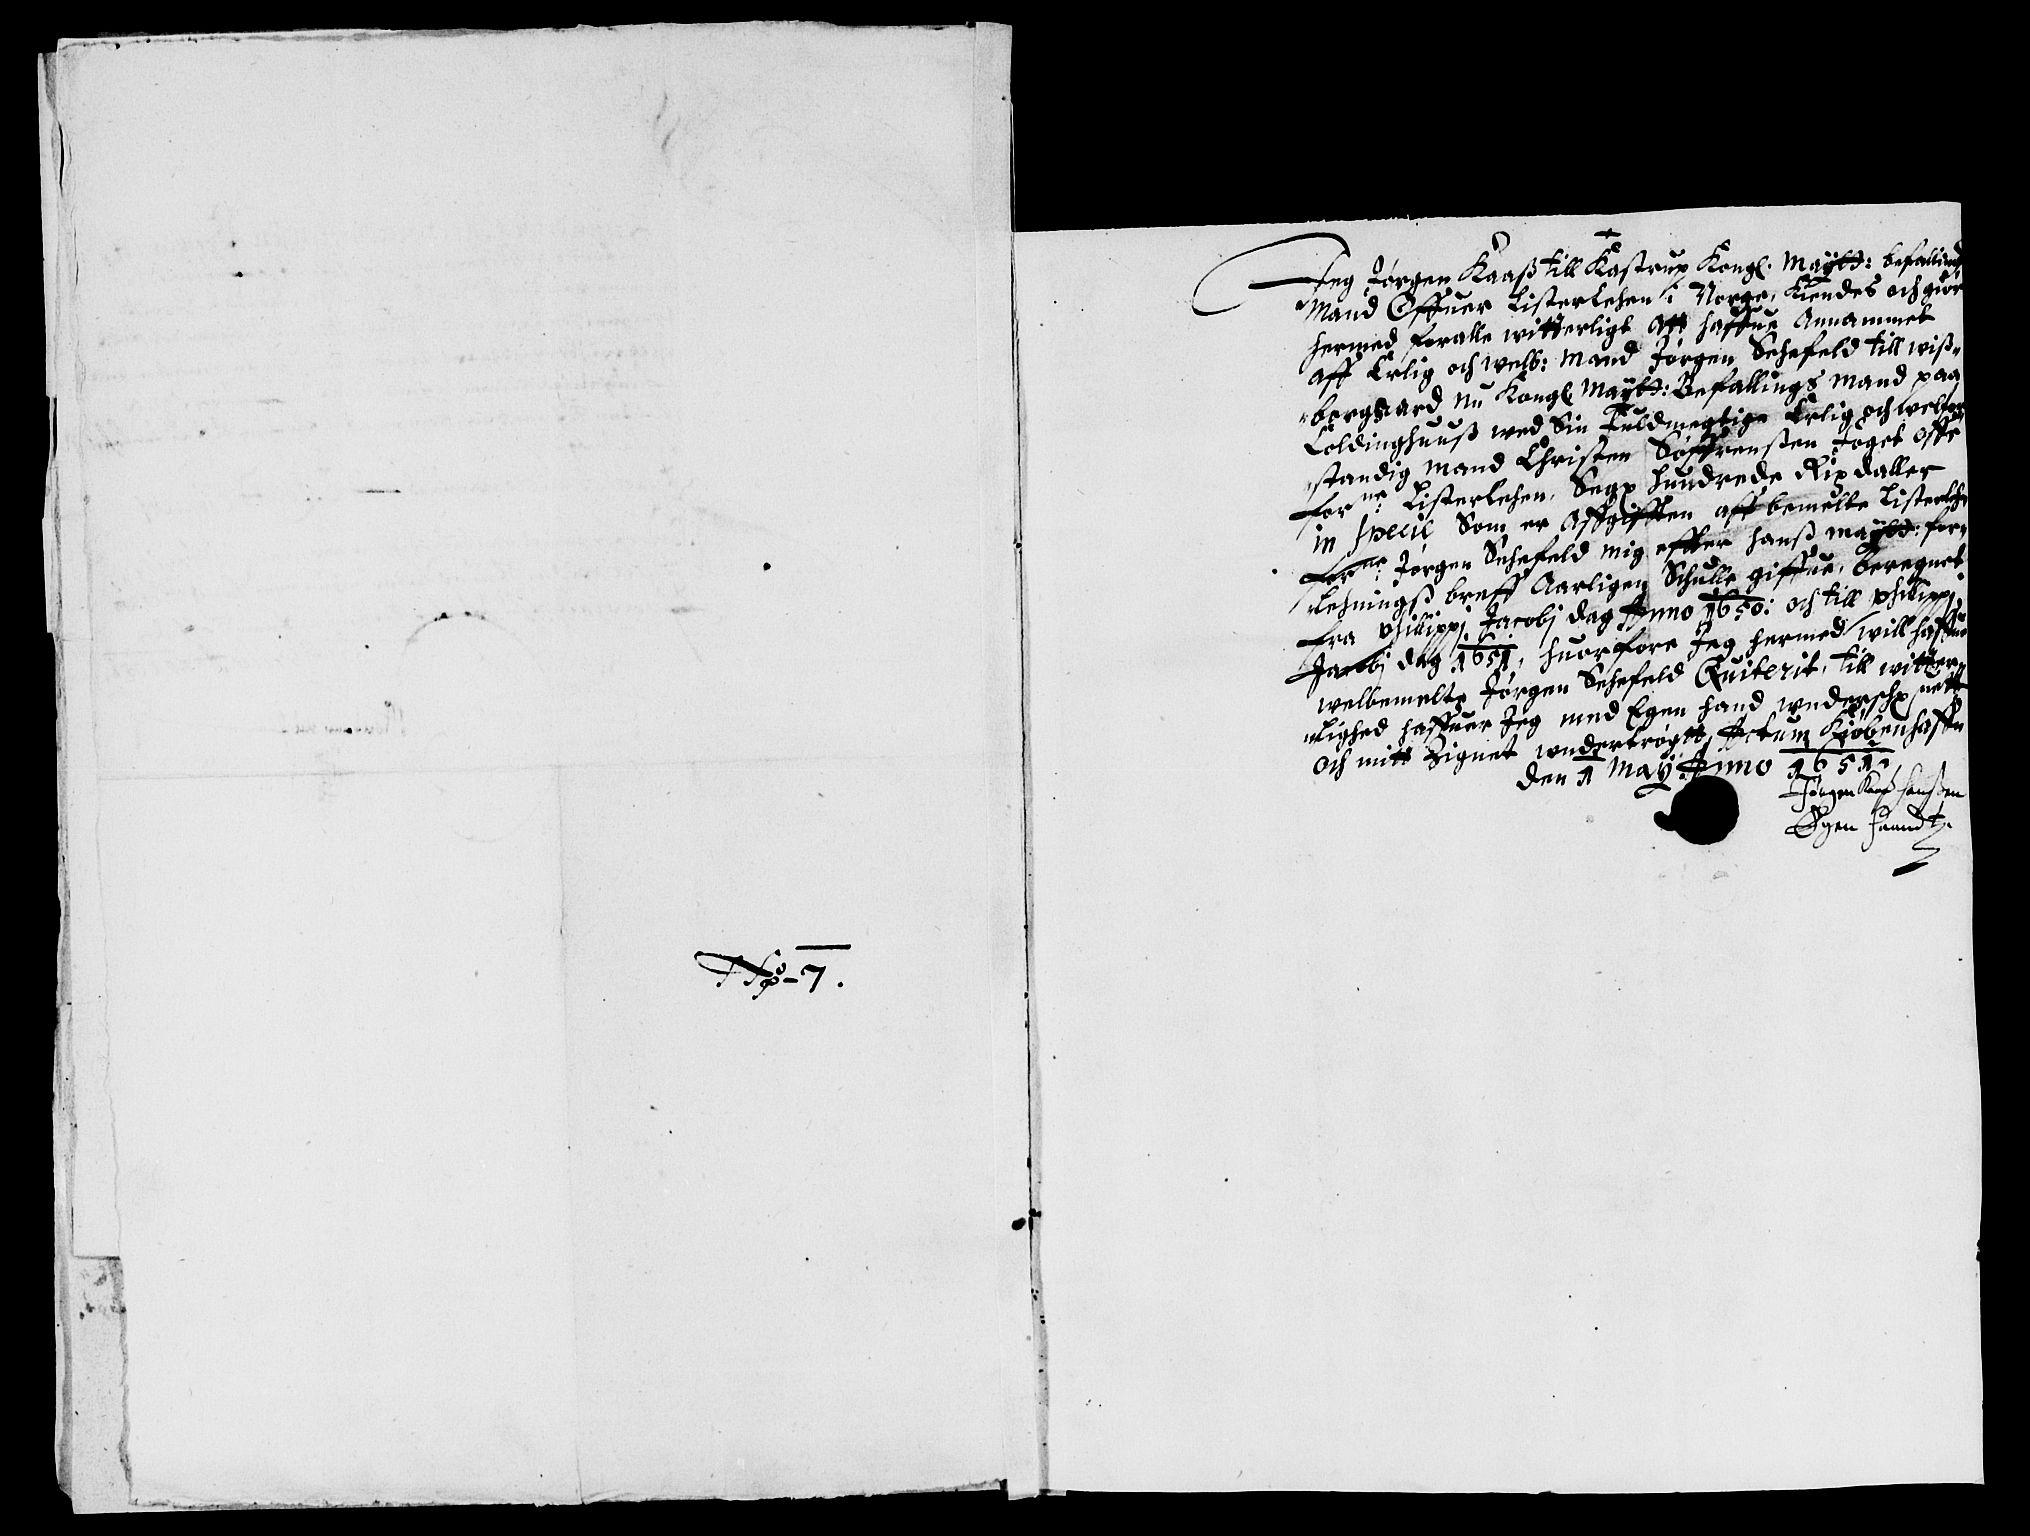 No-7.
Jeg Jørgen Kaaß till Kastrup Kongl. Maytt: befallings
Mand Offuer Listerlehen i Norge, Kiendes och giør
hermed for alle witterligt Att haffue Annammet
aff Erlig och welb: Mand Jørgen Sehefeld till wiß-
-bergaard nu Kongl Maytt: Befallings Mand paa
Coldinghuuß wed Sin Fuldmegtige Erlig och welfor
standig Mand Christen Søffrensten Foget offr
forne: Listerlehen, Sex hundrede Rix daller
in specie Som er Affgifften aff bemelte Listerlehn
forne: Jørgen Sehefeld mig effter hanß Maytt: for-
lehningß breff Aarligen Schulle giffue, beregnet
fra Philippj Jacobj dag Anno 1650: och till Philippj
Jacobj dag 1651, huorfore Jeg hermed will haffue
welbemelte Jørgen Sehefeld Quiterit, till witter-
-lighed haffuer Jeg med Egen hand wnderschreffnett
och mitt Zignet wndertrøgt, Actum Kiøbenhaffn
den 1 May Anno 1651.
Jørgen Kaaß Hanßen
Egen Haandt